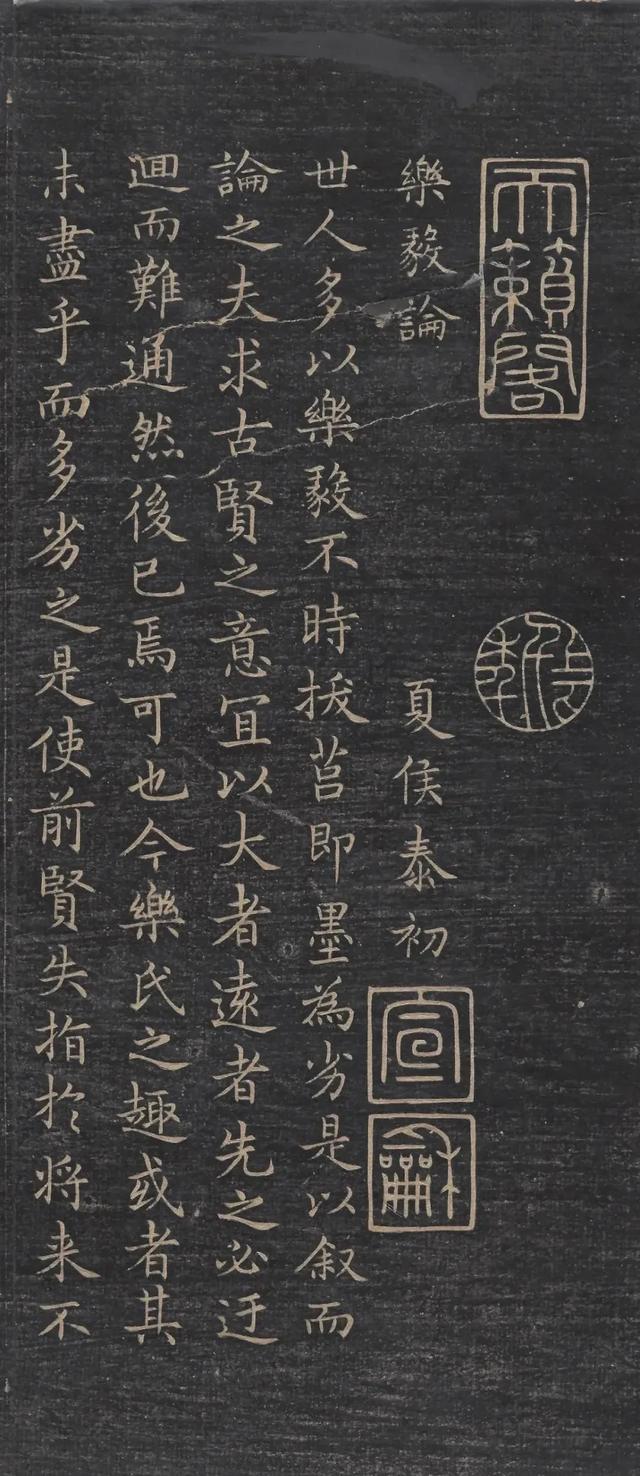 天籟閣
樂毅論 夏侯泰初
宣
龢
世人多以樂毅不時拔莒即墨為劣是以叙而
論之夫求古賢之意冝以大者遠者先之必迂
迴而難通然後已焉可也今樂氏之趣或者其
未盡乎而多劣之是使前賢失指於将来不